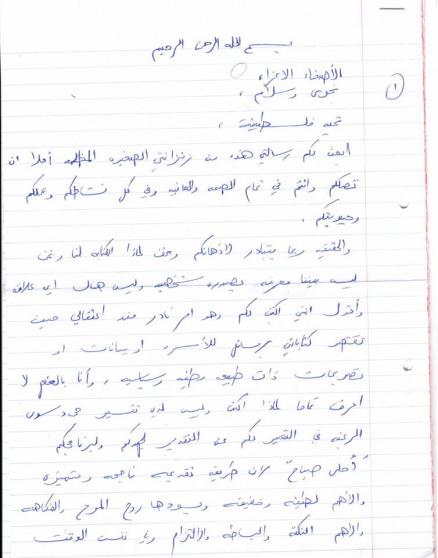 بسم الله الرحمن الرحيم
الأصدقاء الأعزاء
١
تحية فلسطينية ،
ابعث لكم رسالتي هذه من زنزانتي الصغيره المظلمه آملا ان
تصلكم وانتم في تمام الصحه والعافيه وفي كل نشاطكم وعملكم
وحيويتكم .
والحقيقه ربما يتبادر لاذهانكم لماذا الكتابه لنا ونحن
ليس بيننا معرفه بصوره شخصيه وليس هناك اي علاقه
وأقول انني اكتب لكم وهو امر نادر منذ اعتقالي حيث
تقتصر كتاباتي للأسره او بيانات او
تصريحات ذات طبيعه وطنيه وسياسيه ، وأنا بالفعل لا
اعرف تماما لماذا اكتب وليس لدي تفسير محدد سوى
الرغبه في التعبير لكم عن التقدير لجهدكم ولبرنامجكم
"أحلى صباح" لان طريقة تقديمه ناجحه ومتميزه
والأهم لطيفه وخفيفه ويسودها روح المرح والفكاهه
والأهم النكته والبساطه والالتزام وفي نفس الوقت